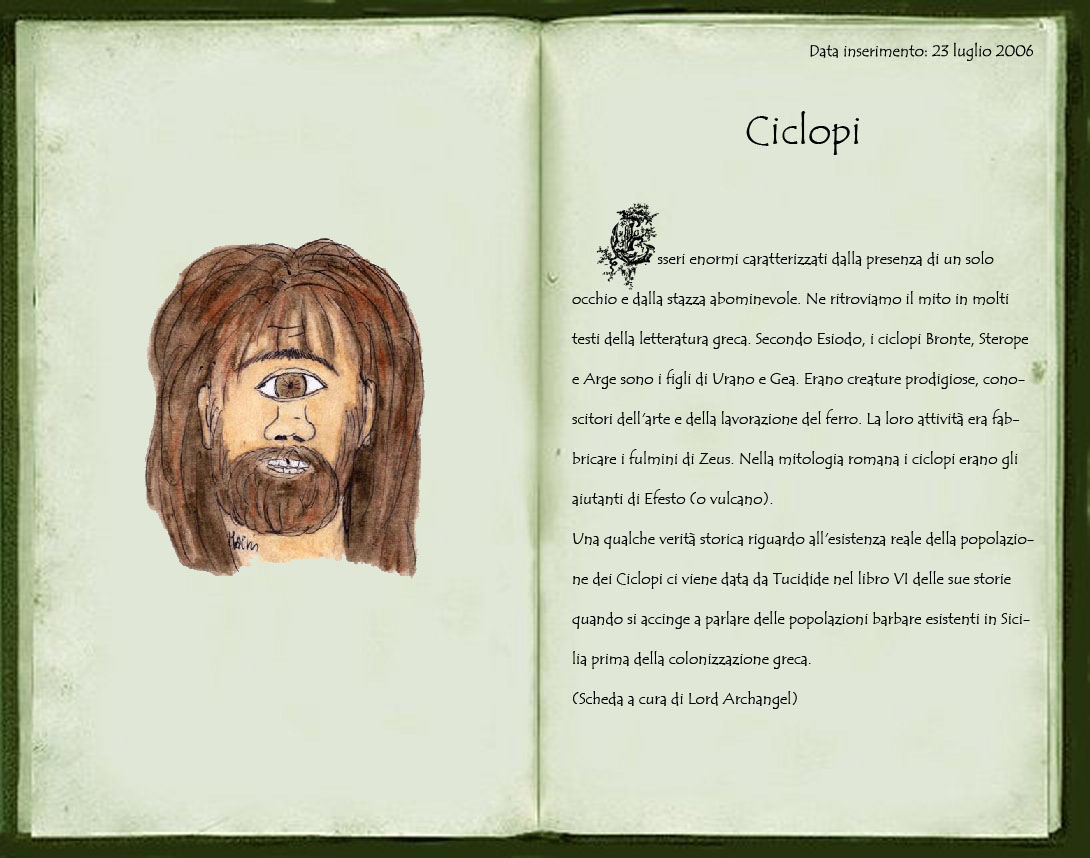 Data inserimento: 23 luglio 2006
Ciclopi
Esseri enormi caratterizzati dalla presenza di un solo
occhio e dalla stazza abominevole. Ne ritroviamo il mito in molti
testi della letteratura greca. Secondo Esiodo, i ciclopi Bronte, Sterope
e Arge sono i figli di Urano e Gea. Erano creature prodigiose, cono-
scitori dell'arte e della lavorazione del ferro. La loro attività era fab-
bricare i fulmini di Zeus. Nella mitologia romana i ciclopi erano gli
aiutanti di Efesto (o vulcano).
Una qualche verità storica riguardo all'esistenza reale della popolazio-
ne dei Ciclopi ci viene data da Tucidide nel libro VI delle sue storie
quando si accinge a parlare delle popolazioni barbare esistenti in Sici-
lia prima della colonizzazione greca.
(Scheda a cura di Lord Archangel)